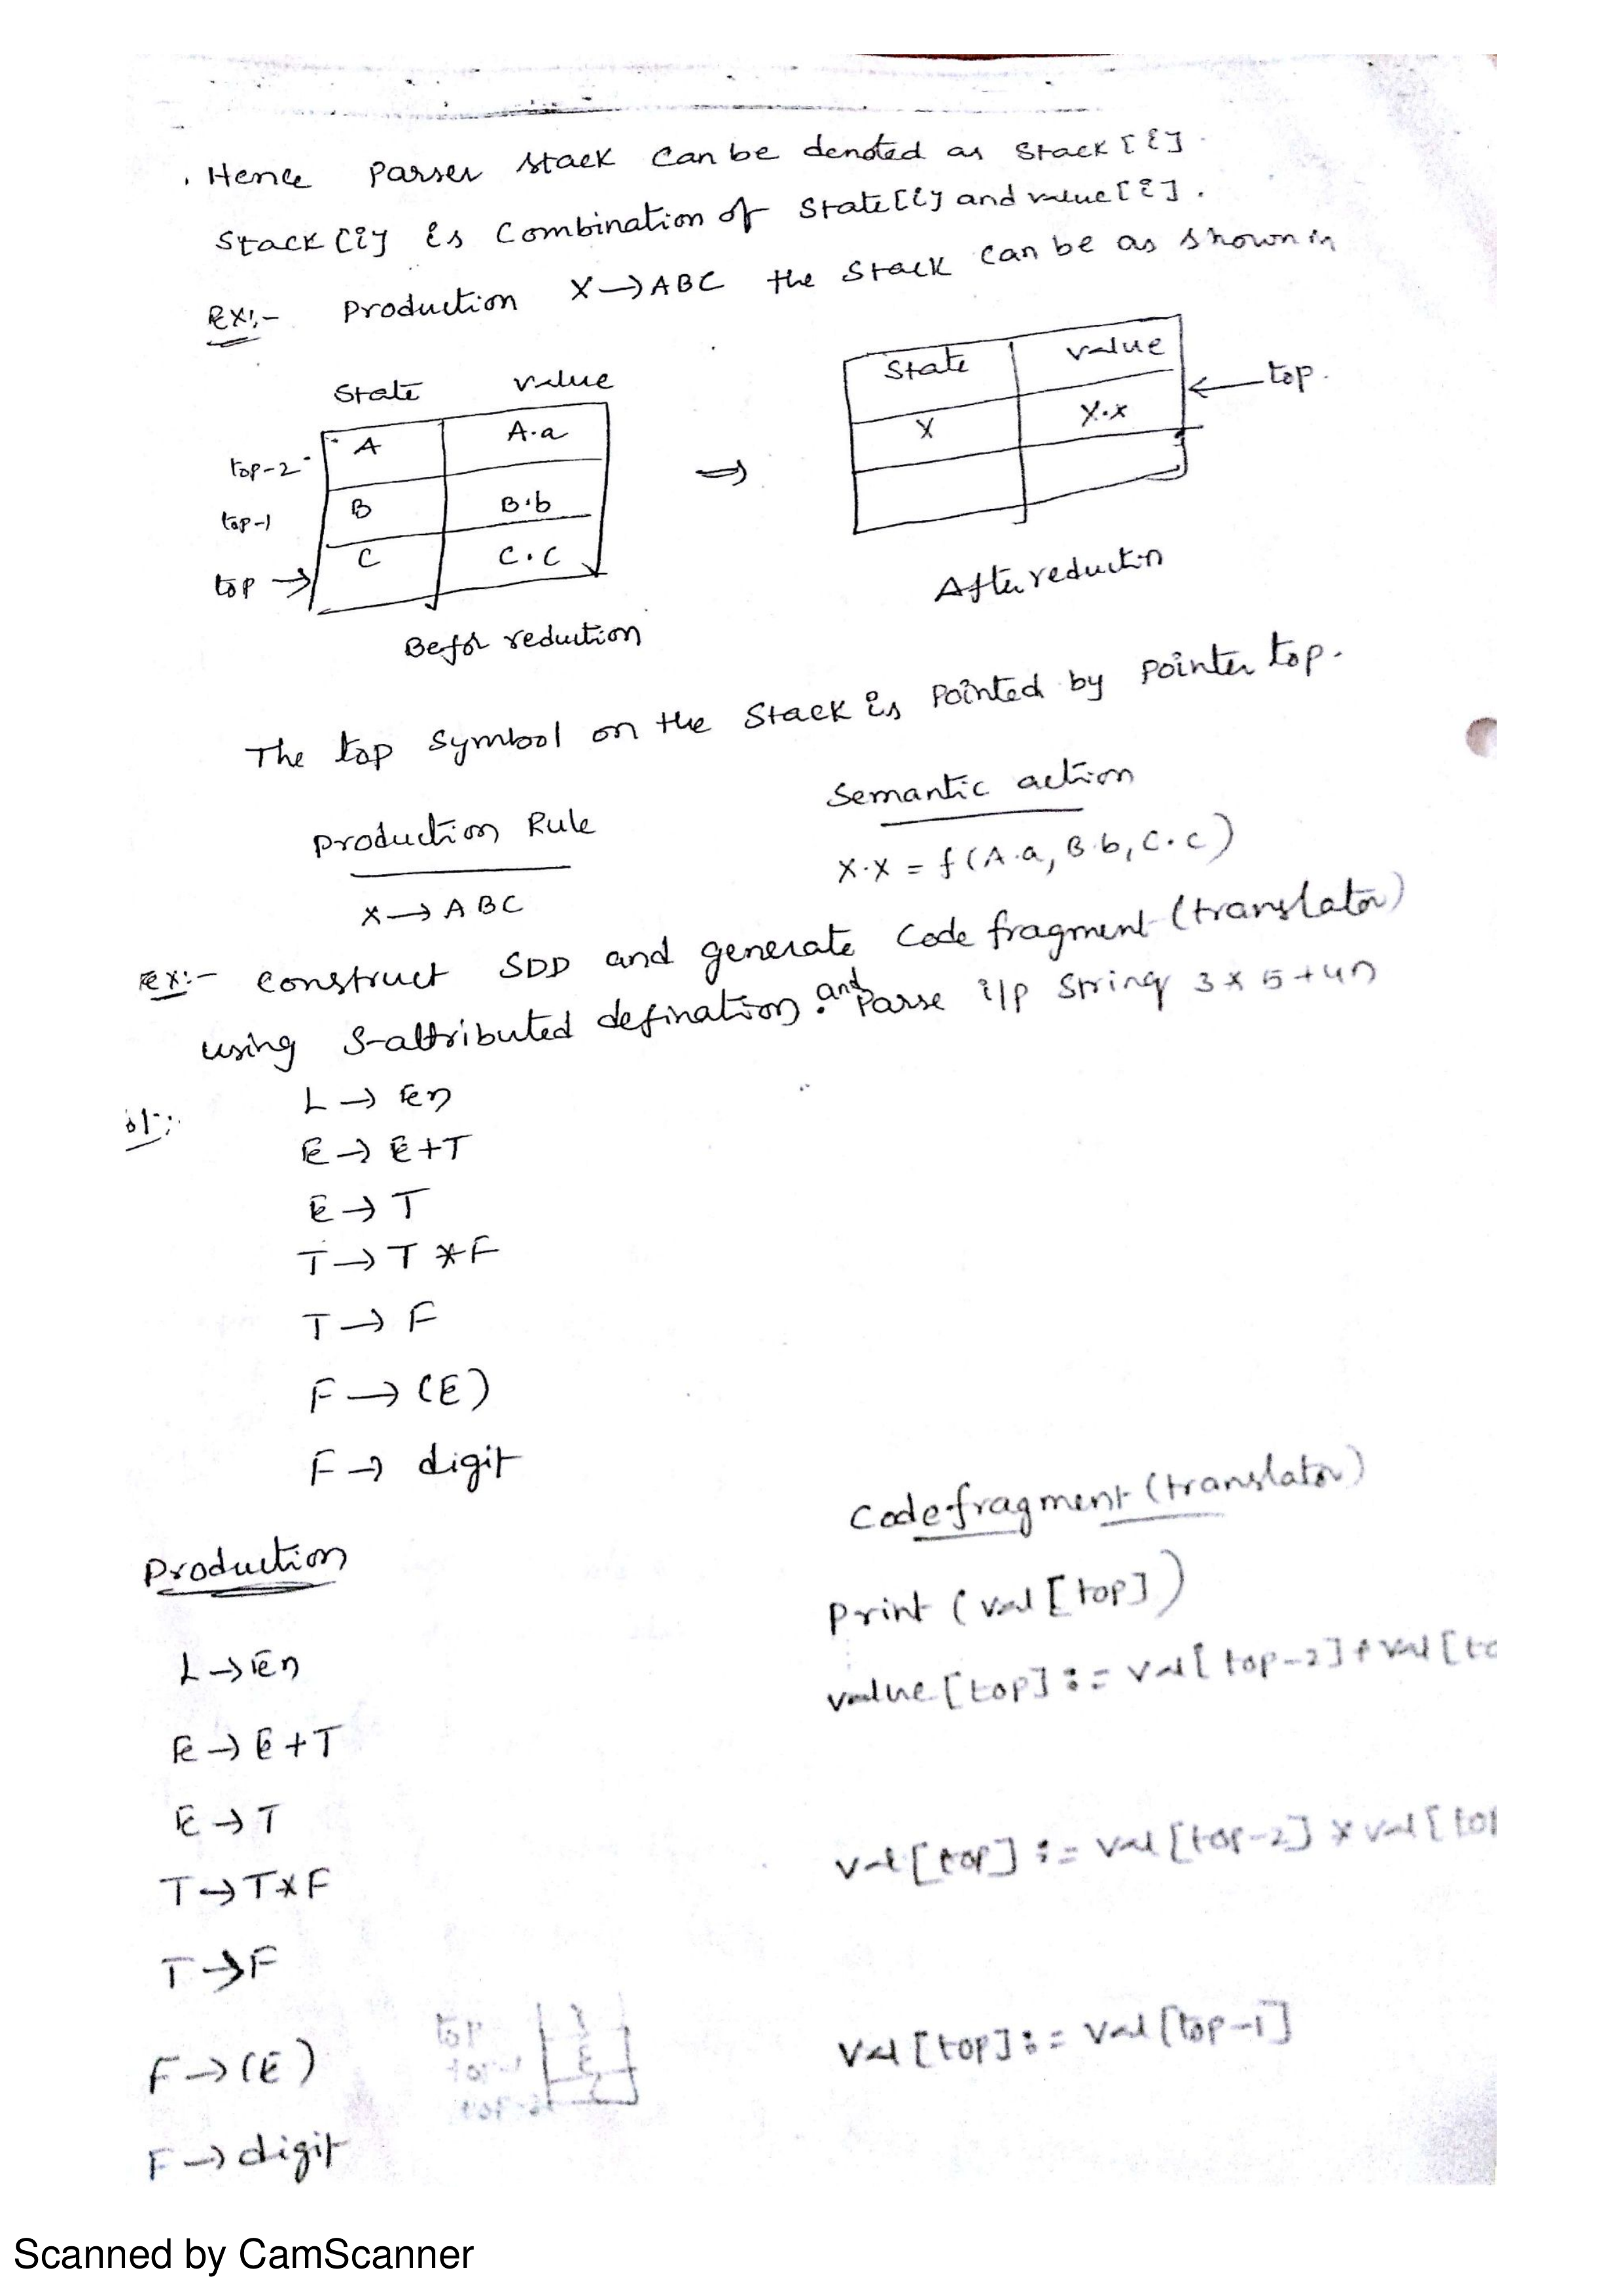 . Hence Parser stack can be denoted as Stack [i].
Stack [i] is Combination of State [i] and value [i].
Ex:- Production X → ABC the Stack can be as shown in
State value
top-2 A A.a
top-1 B B.b
top → C C.c
Befor reduction
⇒
State value
X X.x ← top.
After reduction
The top symbol on the Stack is Pointed by Pointer top.
Production Rule Semantic action
X → ABC X.x = f(A.a, B.b, C.c)
Ex:- Construct SDD and generate Code fragment (translator)
using S-attributed defination. and Parse i/p String 3*5+4n
ol:-
L → En
E → E+T
E → T
T → T*F
T → F
F → (E)
F → digit
Production Code fragment (translator)
L → En Print (val [top])
E → E+T value [top] := val [top-2] + val [to
E → T
T → T*F val [top] := val [top-2] * val [top
T → F
F → (E) val [top] := val [top-1]
top
top-1
top-2
F → digit
Scanned by CamScanner